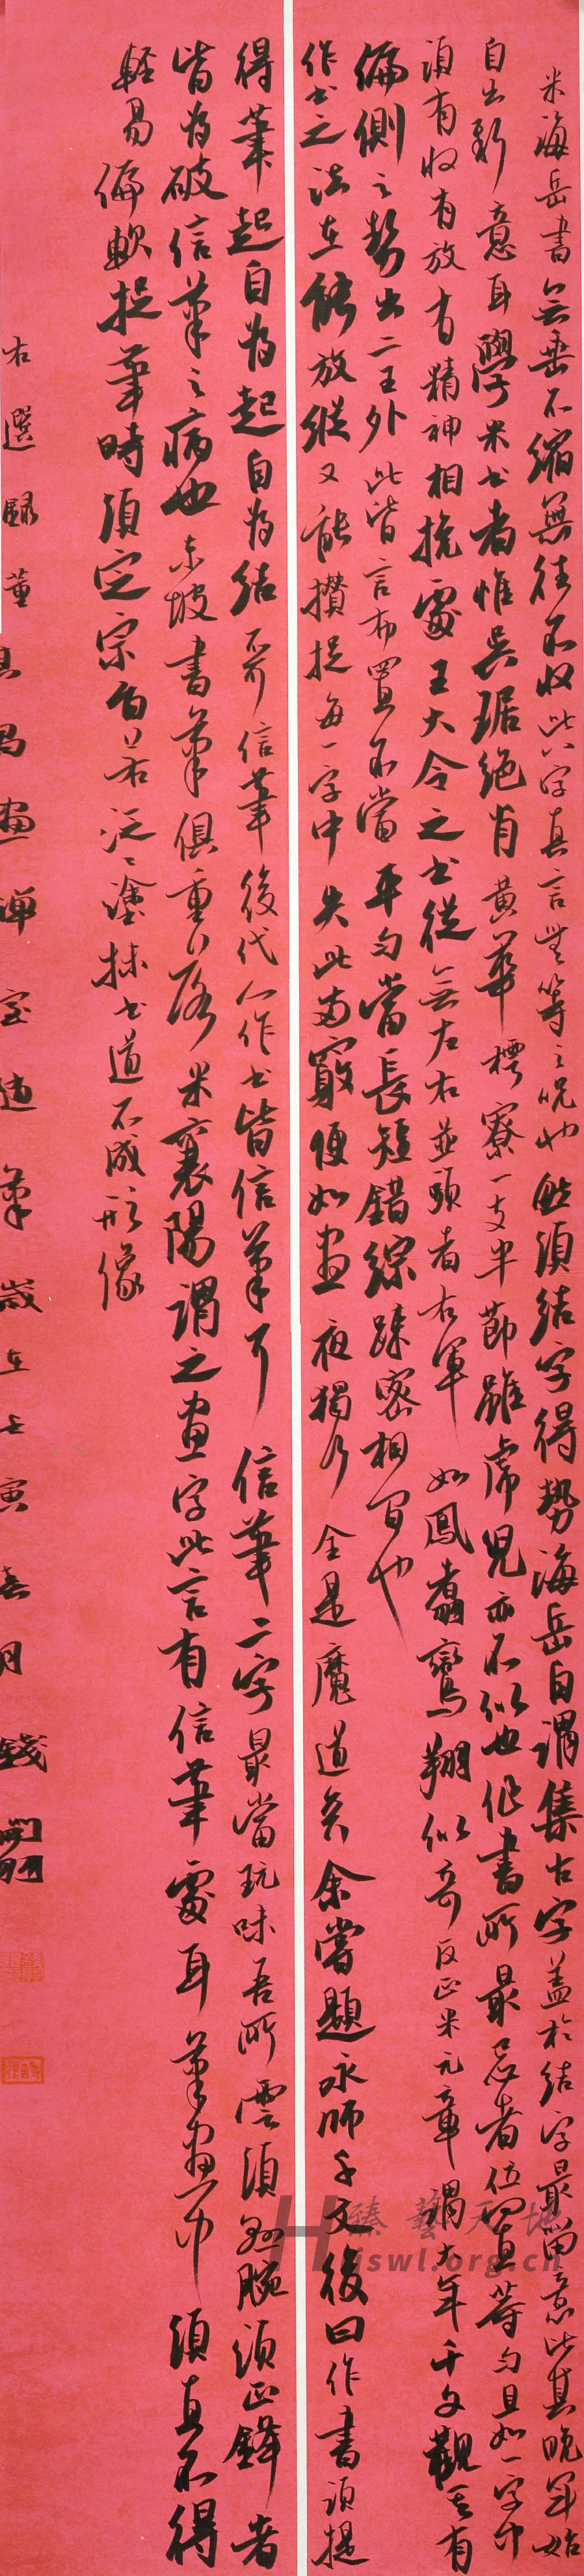 米海岳書無垂不縮無往不收此八字真言無等之咒也然須結字得勢海岳自謂集古字蓋於結字最留意比其晚年始
自出新意耳學米書者惟吳琚絕肖黃華樗寮一支半節雖虎兒亦不似也作書所最忌者位置等勻且如一字中
須有收有放有精神相挽處王大令之書從無左右並頭者右軍如鳳翥鸞翔似奇反正米元章謂大年千文觀其有
偏側之勢出二王外此皆言布置不當平勻當長短錯綜疎密相間也
作書之法在能放縱又能攢捉每一字中失此兩竅便如晝夜獨行全是魔道矣余嘗題永師千文後曰作書須提
得筆起自為起自為結不可信筆後代人作書皆信筆耳信筆二字最當玩味吾所云須懸腕須正鋒者
皆為破信筆之病也東坡書筆俱重落米襄陽謂之畫字此言有信筆處耳筆畫中須直不得
輕易偏軟捉筆時須定宗旨若泛泛塗抹書道不成形像
右選錄董其昌畫禪室隨筆歲在壬寅春月錢
臻藝天地
Hjswl.org.cn